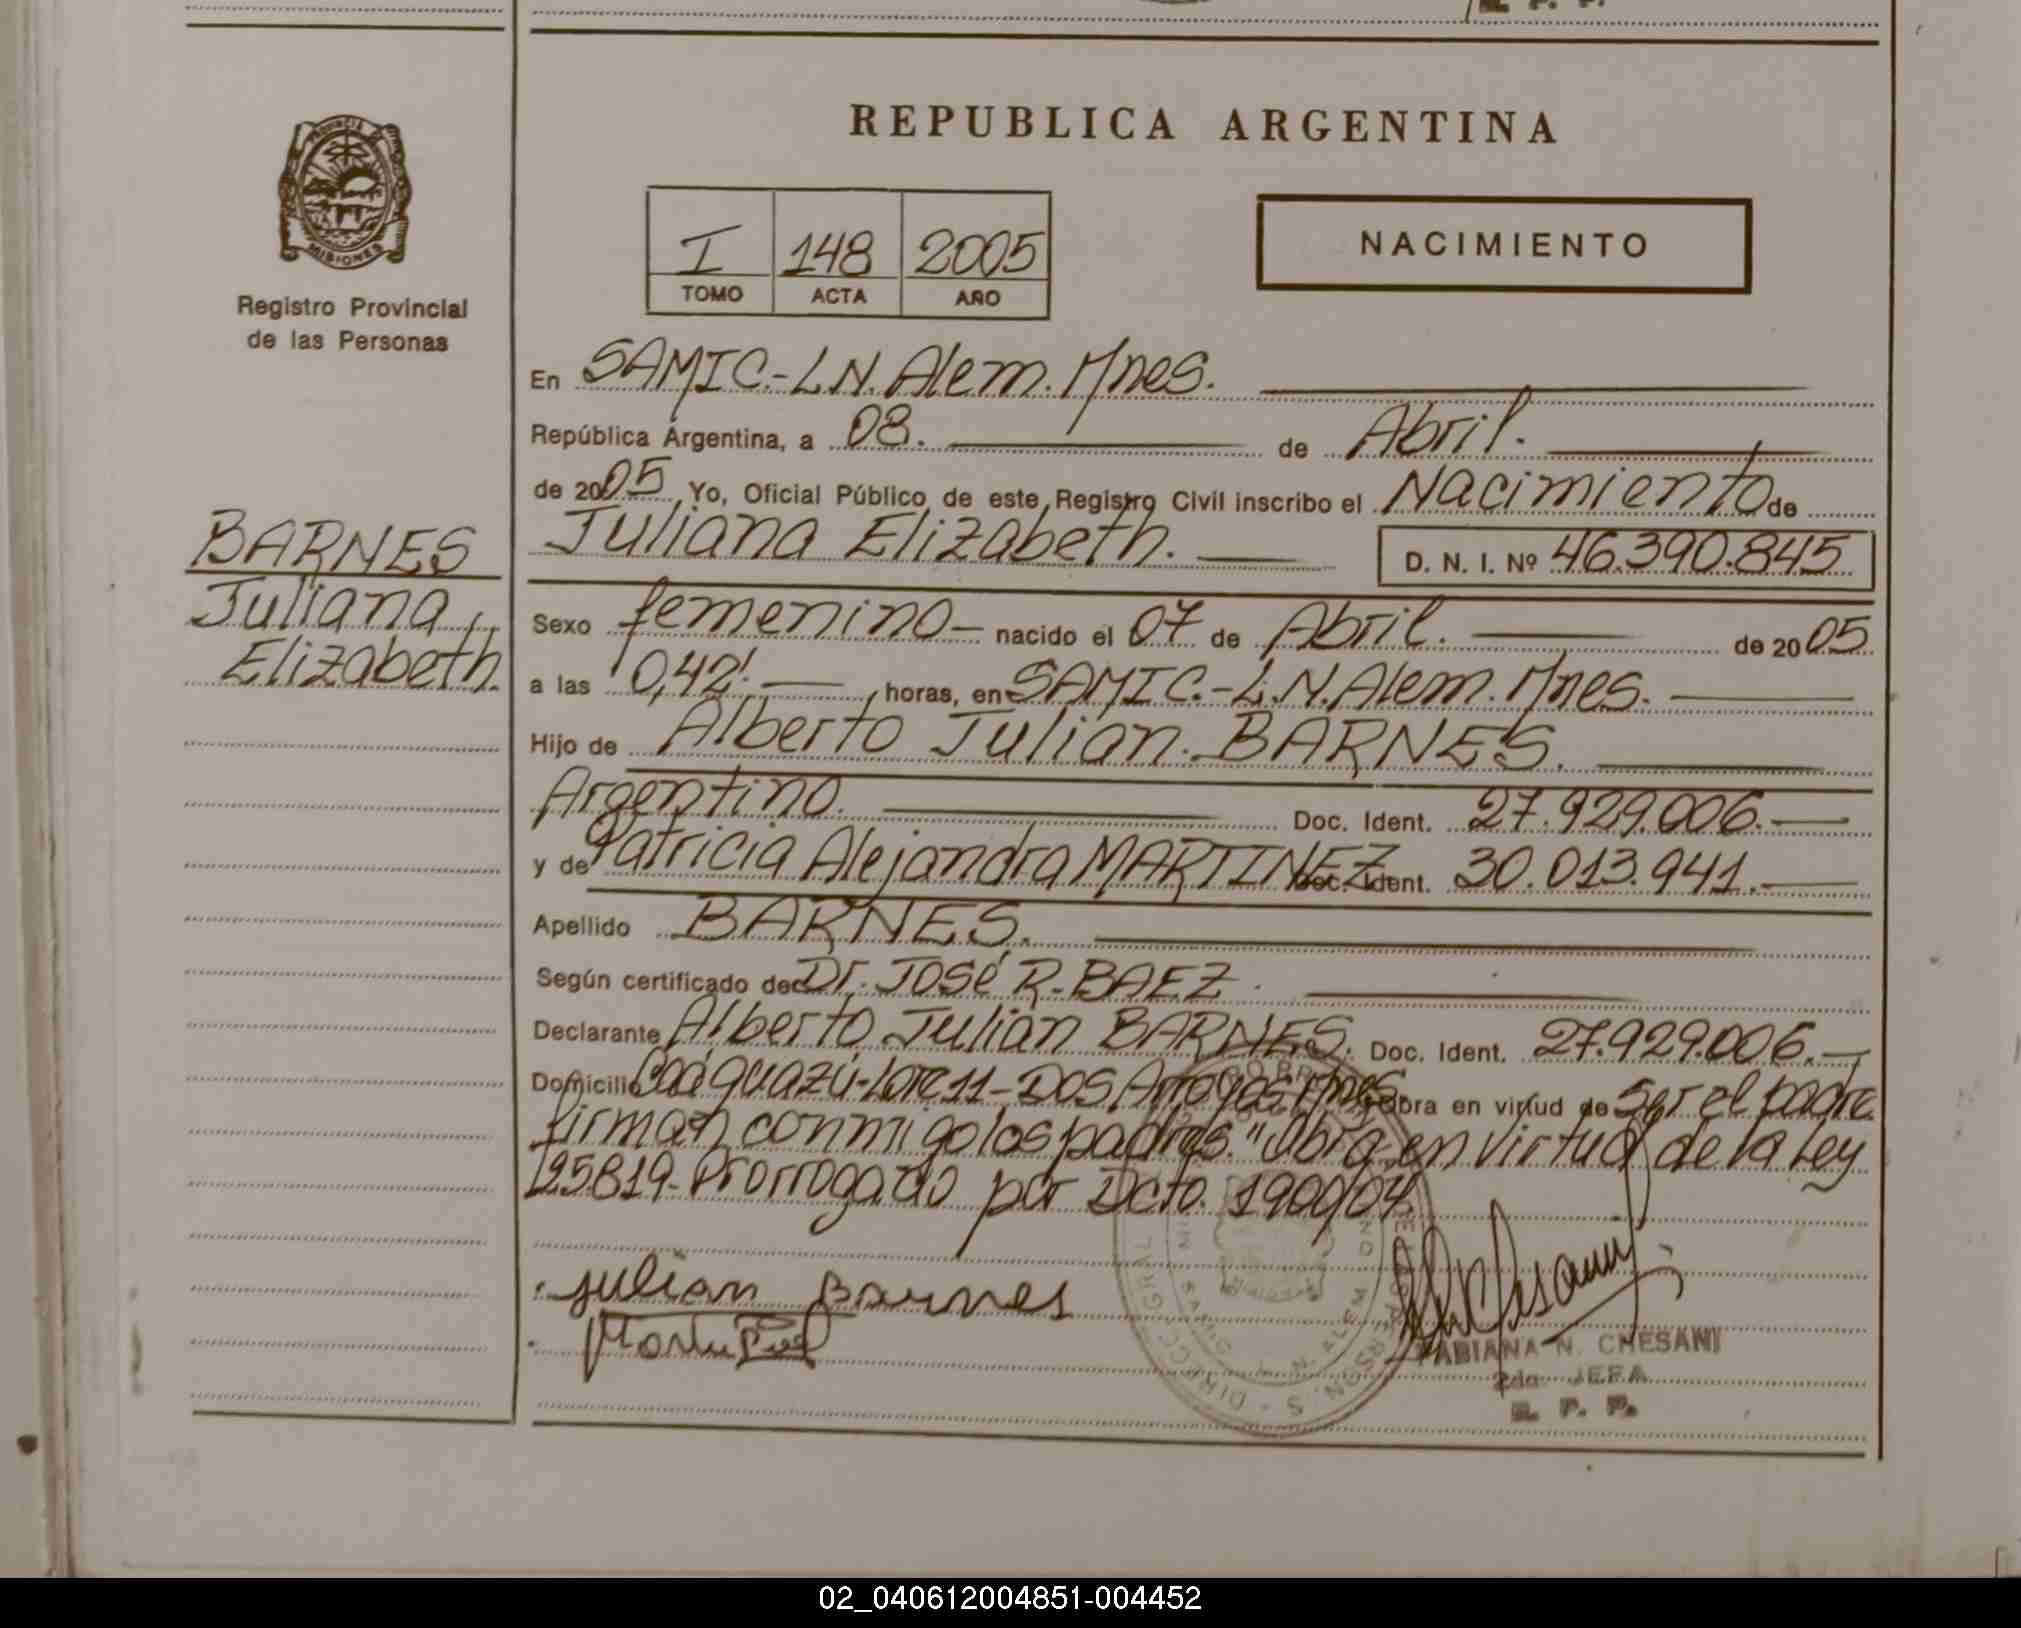 REPUBLICA ARGENTINA
PROVINCIA DE MISIONES
Registro Provincial
de las Personas
I 148 2005
TOMO ACTA AÑO
NACIMIENTO
BARNES
Juliana
Elizabeth.
En SAMIC.-L.N. Alem. Mnes.
República Argentina, a 08. de Abril.
de 2005 Yo, Oficial Público de este Registro Civil inscribo el Nacimiento de
Juliana Elizabeth. D. N. I. Nº 46.390.845
Sexo femenino nacido el 07 de Abril. de 2005
a las 0,42'. horas, en SAMIC.-L.N. Alem. Mnes.
Hijo de Alberto Julian. BARNES.
Argentino. Doc. Ident. 27.929.006.
y de Patricia Alejandra MARTINEZ Doc. Ident. 30.013.941.
Apellido BARNES.
Según certificado de Dr. José R. BAEZ
Declarante Alberto Julián BARNES. Doc. Ident. 27.929.006.
Domicilio Caáguazú-Lote 11-DOS Arroyos Mnes. Obra en virtud de ser el padre
firman conmigo los padres. "Obra en virtud de la Ley
25819-Prorrogado por Dcto. 1900/04
Julian Barnes
FABIANA N. CHESANI
2da. JEFA
R. P. P.
02_040612004851-004452